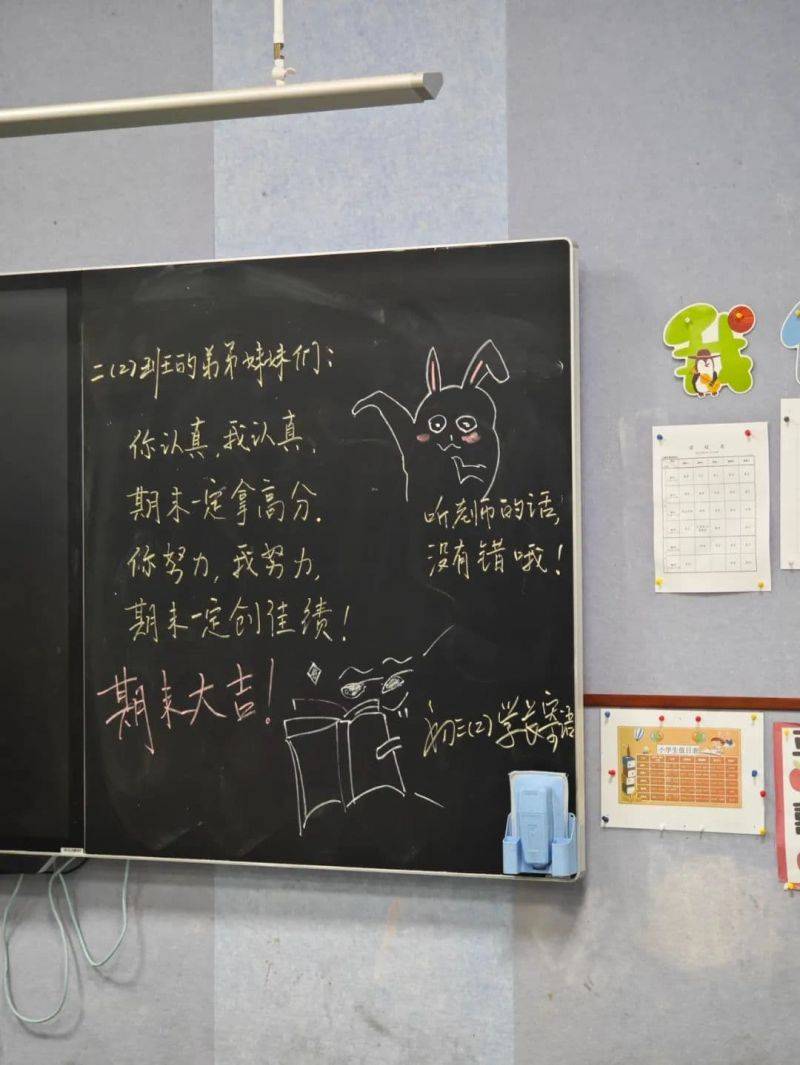 二(2)班的弟弟妹妹们：
你认真，我认真，
期末一定拿高分.
你努力，我努力，
期末一定创佳绩！
期末大吉！
听老师的话，
没有错哦！
初三(2)学长寄语
我
课程表
小学生值日表